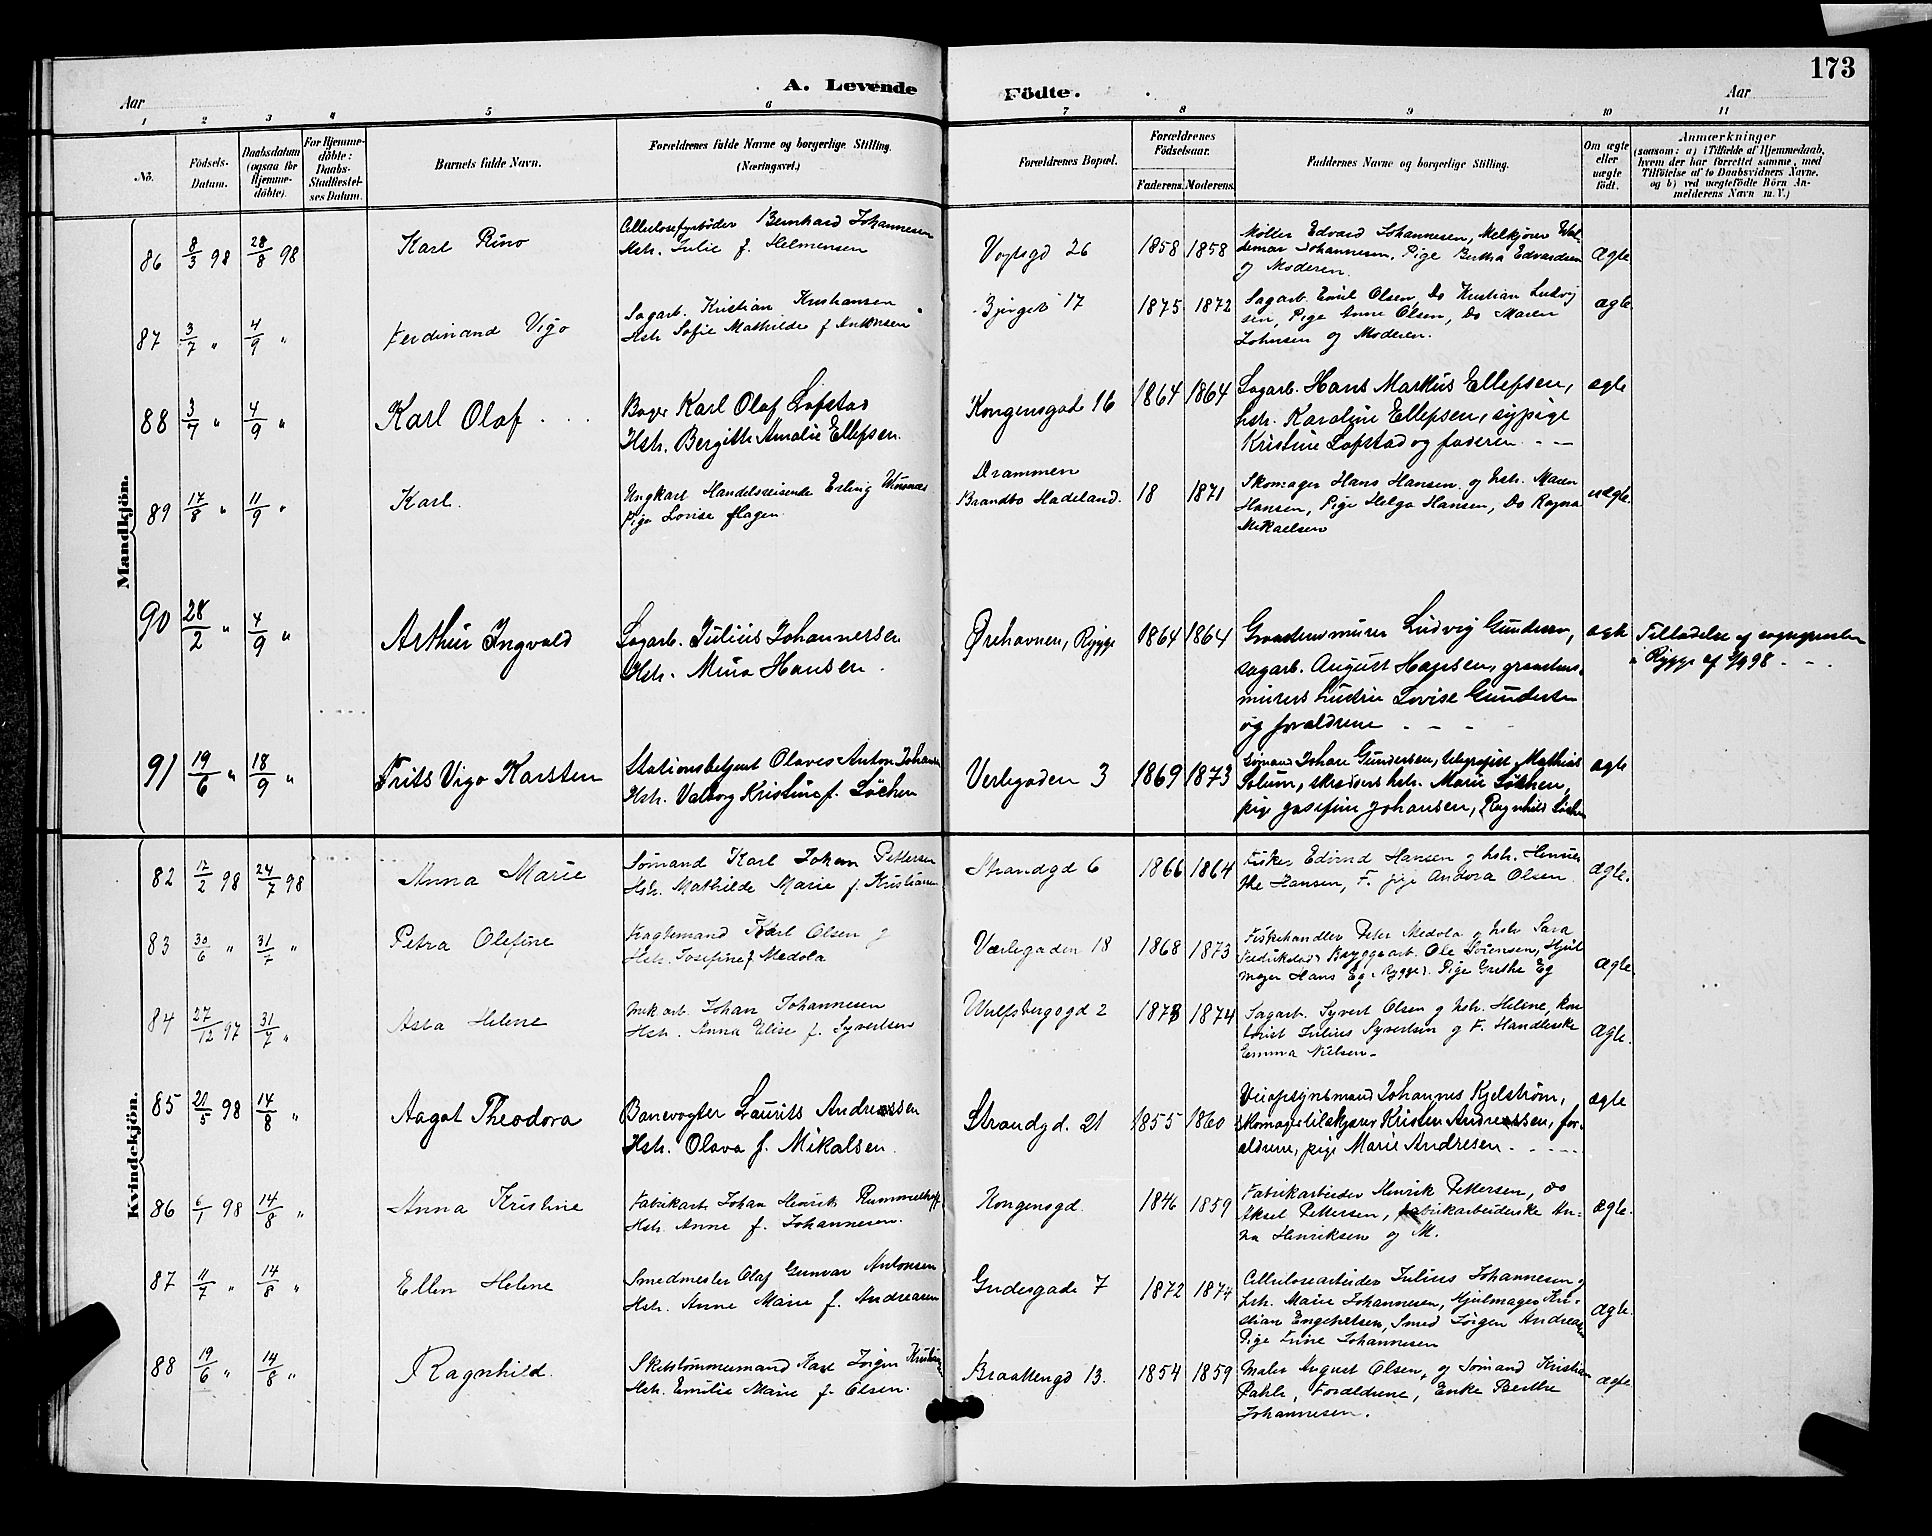 173
A. Levende Födte.
Aar
Aar
1 2 3 4 5 6 7 8 9 10 11
No.
Födsels-Datum.
Daabsdatum (ogsaa for Hjemme-döbte).
For Hjemme-döbte: Daabs-Stadfæstel-ses Datum.
Barnets fulde Navn.
Forældrenes fulde Navne og borgerlige Stilling. (Næringsvei.)
Forældrenes Bopæl.
Forældrenes Födselsaar.
Faderens. Moderens.
Faddernes Navne og borgerlige Stilling.
Om ægte eller uægte födt.
Anmærkninger
(saasom: a) i Tilfælde af Hjemmedaab, hvem der har forrettet samme, med Tilföielse af to Daabsvidners Navne, og b) ved uægtefödte Börn An-melderens Navn m. V.)
Mandkjön.
86 8/3 98 28/8 98 Karl Rino
Cellulosefyrbøder Bernhard Johannesen
Hstr. Julie f. Helmensen
Vogtsgd 26 1858 1858
Møller Edvard Johannesen, Melkjører Wal-
demar Johannesen, Pige Bertha Edvardsen
og Moderen.
ægte
87 3/7 " 4/9 " Ferdinand Vigo
Sagarb. Kristian Kristiansen
Hstr Sofie Mathilde f
Bjerget 17 1875 1872
Sagarb. Emil Olsen, Do Kristian Ludvig
sen, Pige Anne Olsen, Do Maren
Johnsen og Moderen.
ægte
88 3/7 " 4/9 " Karl Olaf
Bager Karl Olaf Lofstad
Hstr. Bergithe Amalie Ellefsen.
Kongensgade 16 1864 1864
Sagarb. Hans Markus Ellefsen,
hstr. Karoline Ellefsen, sypige
Kristine Lofstad og faderen
ægte
89 17/8 " 11/9 " Karl.
Ungkarl Handelsreisende Erling
Pige Lovise Hagen
Drammen
Brandbo Hadeland. 18 1871
Skomager Hans Hansen og hstr. Maren
Hansen, Pige Helga Hansen, Do Ragna
Mikaelsen
uægte.
90 28/2 " 4/9 " Arthur Ingvald
Sagarb. Julius Johannessen
Hstr. Mina Hansen.
Ørehavnen, Rygge 1864 1864
Graastensmurer Ludvig Gundersen,
sagarb. August Hansen, graastens-
murers hustru Lovise Gundersen
og forældrene
ægte
Tilladelse af sognepresten
i Rygge af 3/9 98
91 19/6 " 18/9 " Frits Vigo Karsten
Stationsbetjent Olaves Anton Johansen
Hstr. Valborg Kristine f. Löchen
Verlegaden 3 1869 1873
Sömand Johan Gundersen, telegrafist Mathias
Solum, skrædders hstr. Marie Löchen,
pige Josefine Johansen, Ragnhild Löchen
ægte
Kvindekjön.
82 17/2 98 24/7 98 Anna Marie
Sømand Karl Johan Pettersen
Hstr. Mathilde Marie f. Kristiansen
Strandgd 6 1866 1864
Fisker Edvind Hansen og hstr. Henriet
the Hansen, F. pige Andora Olsen.
ægte.
83 30/6 " 31/7 " Petra Olefine
Fragtemand Karl Olsen og
Hstr. Josefine f Medola
Værlegaden 18 1868 1873
Fiskehandler Peter Medola og hstr Sara
Fredrikstad, Bryggearb. Ole Sørensen, Hjul
mager Hans Eg (Rygge). Pige Grethe Eg
ægte.
84 27/12 97 31/7 " Asta Helene
Mek arb. Johan Johannesen
Hstr. Anna Elise f. Syvertsen
Wulfsbergsgd 2 1873 1874
Sagarb. Syvert Olsen og hstr. Helene, kon
torist Julius Syvertsen og F. Handlerske
Emma Nielsen.
ægte.
85 21/5 98 14/8 " Aagot Theodora
Banevogter Laurits Andreassen
Hstr. Olava f. Mikalsen.
Strandgd. 21 1855 1860
Veiopsynsmand Johannes Kjelström,
skomagertilskjærer Kristen Andreassen, for-
ældrene, pige Marie Andresen.
ægte
86 6/1 98 14/8 " Anna Kristine
Fabrikarb Johan Henrik Rummelhoff
Hstr. Anne f. Johannesen.
Kongensgd. 1846 1859
Fabrikarbeider Henrik Pettersen, do
Aksel Pettersen, fabrikarbeiderske An-
na Henriksen og M.
ægte.
87 11/7 " 14/8 " Ellen Helene
Smedmester Olaf Gunvar Antonsen
Hstr. Anne Marie f. Andreasen
Gudesgade 7 1872 1874
Cellulosearbeider Julius Johannesen og
hstr. Marie Johannesen, Hjulmager Kri-
stian Engebretsen, Smed Jørgen Andreasen
Pige Trine Johannesen
ægte.
88 19/6 " 14/8 " Ragnhild.
Skibstømmermand Karl Jörgen
Hstr. Emilie Marie f. Olsen.
Braatengd 13. 1854 1859
Maler August Olsen, og Sømand Kristian
Dahle, Forældrene, Enke Berthe
Johannesen.
ægte